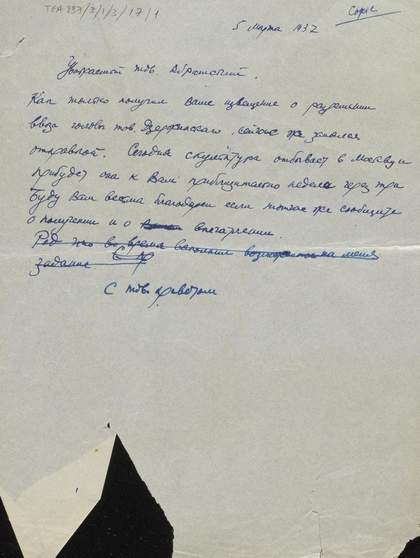 TGA 897/3/1/3/17/1
Copie
5 марта 1932
Уважаемый тов.
Как только получил Ваше извещение о разрешении
ввоза головы тов. Дзержинского, сейчас же занялся
отправкой. Сегодня скульптура отбывает в Москву и
прибудет она к Вам приблизительно недели через три
Буду Вам весьма благодарен если тотчас же сообщите
о получении и о впечатлении.
Рад что во время выполнил на меня
задание
С тов. приветом